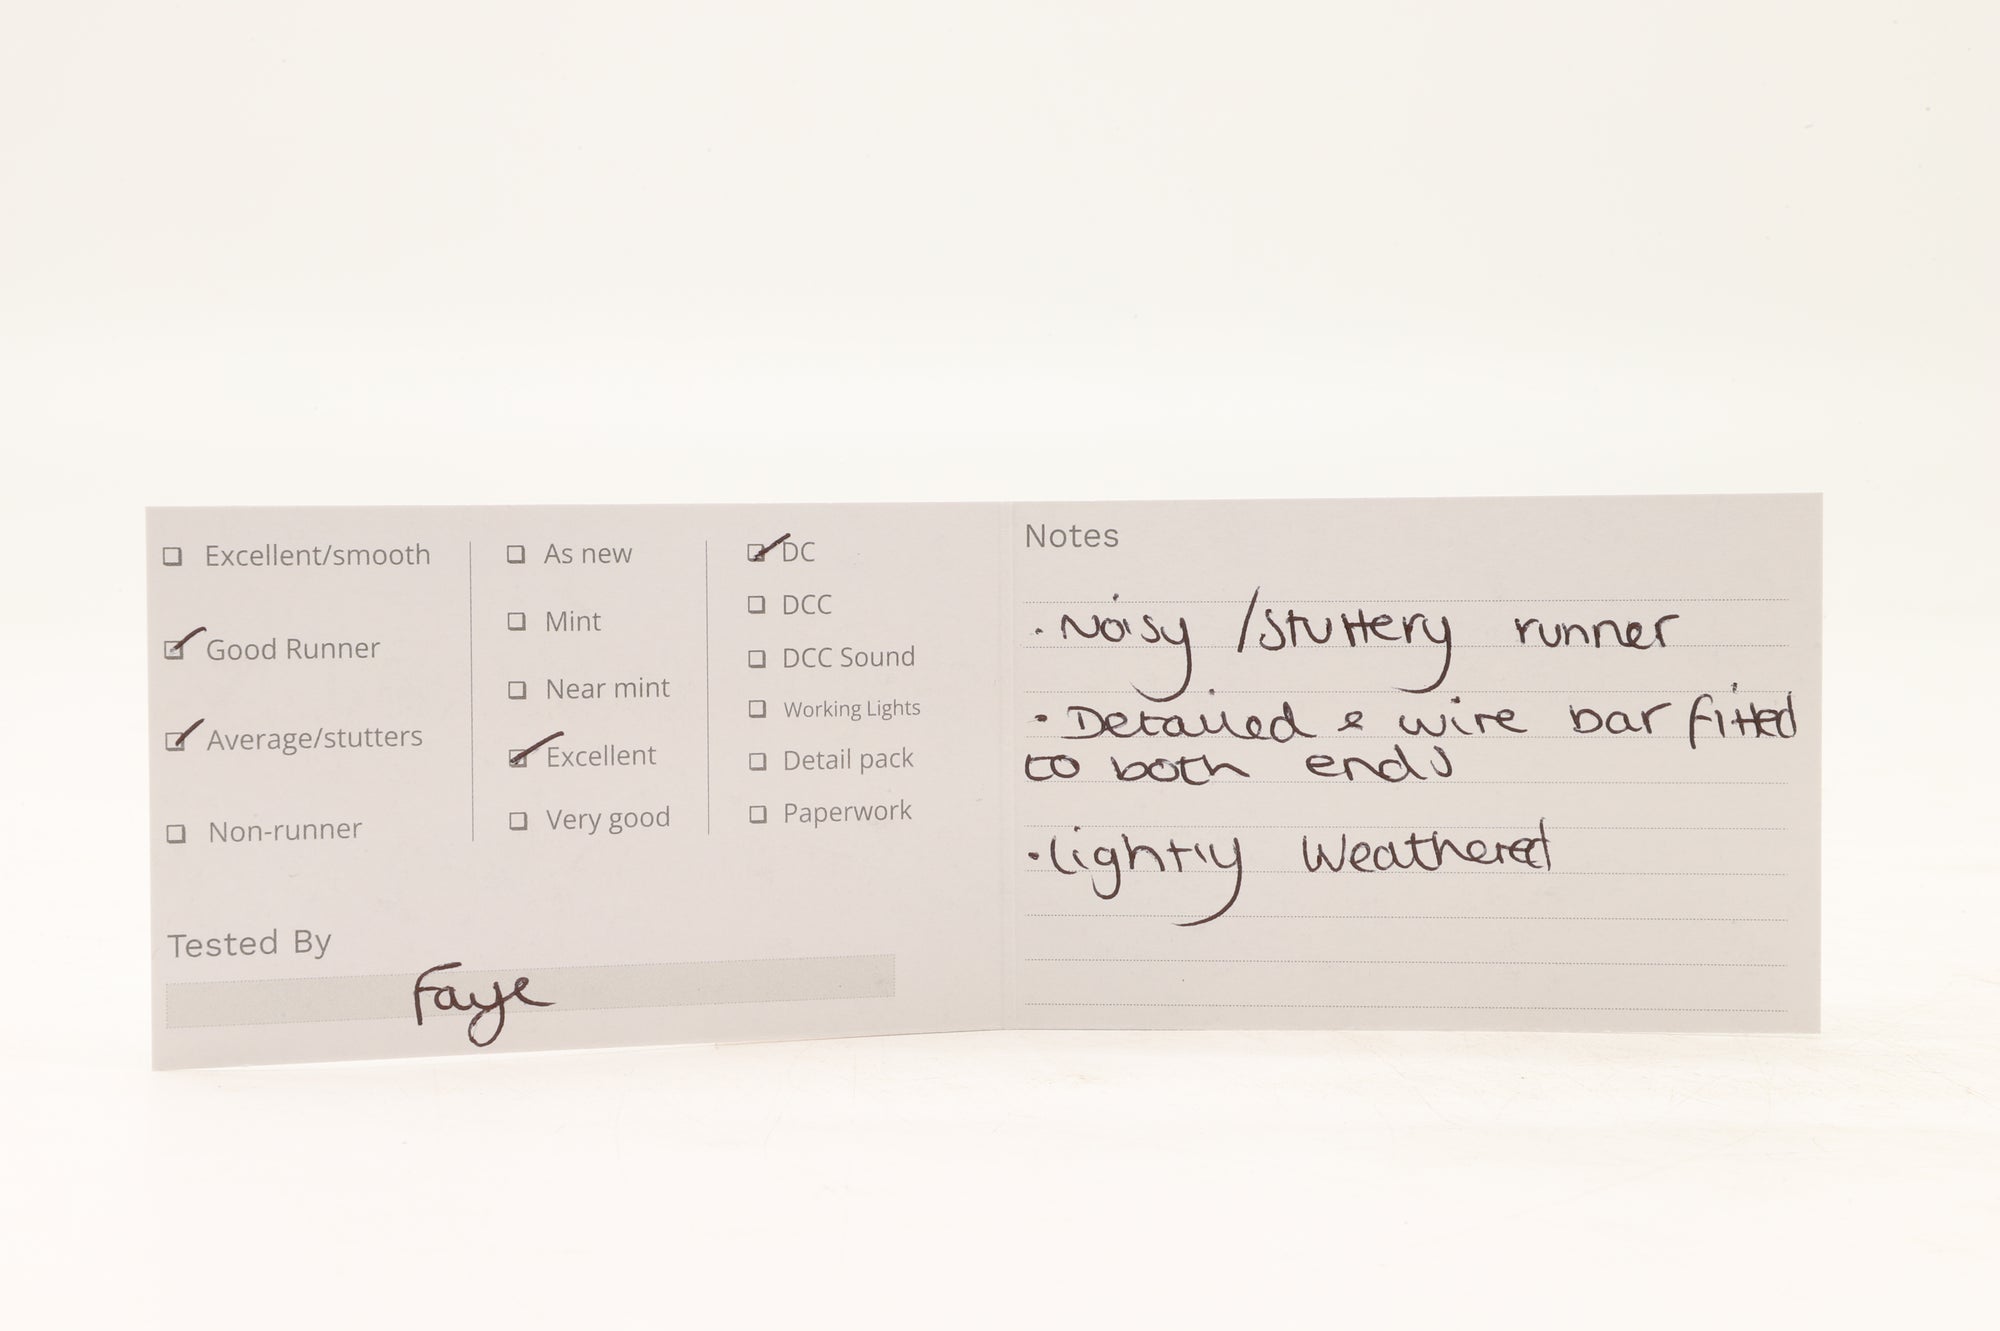 ☐ Excellent/smooth
☑ Good Runner
☑ Average/stutters
☐ Non-runner
☐ As new
☐ Mint
☐ Near mint
☑ Excellent
☐ Very good
☑ DC
☐ DCC
☐ DCC Sound
☐ Working Lights
☐ Detail pack
☐ Paperwork
Tested By
Faye
Notes
· Noisy /stuttery runner
· Detailed & wire bar fitted
to both ends
· Lightly Weathered